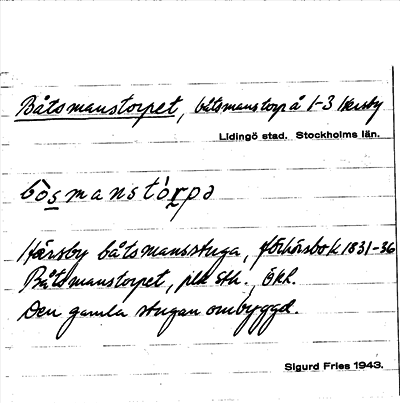 Båtsmanstorpet, båtsmanstorp å 1-3 Hersby
Lidingö stad. Stockholms län.
bòsmanstórpə
Härsby båtsmansstuga, förhörsbok 1831-36
Båtsmanstorpet, Sth., Ökl.
Den gamla stugan ombyggd.
Sigurd Fries 1943.